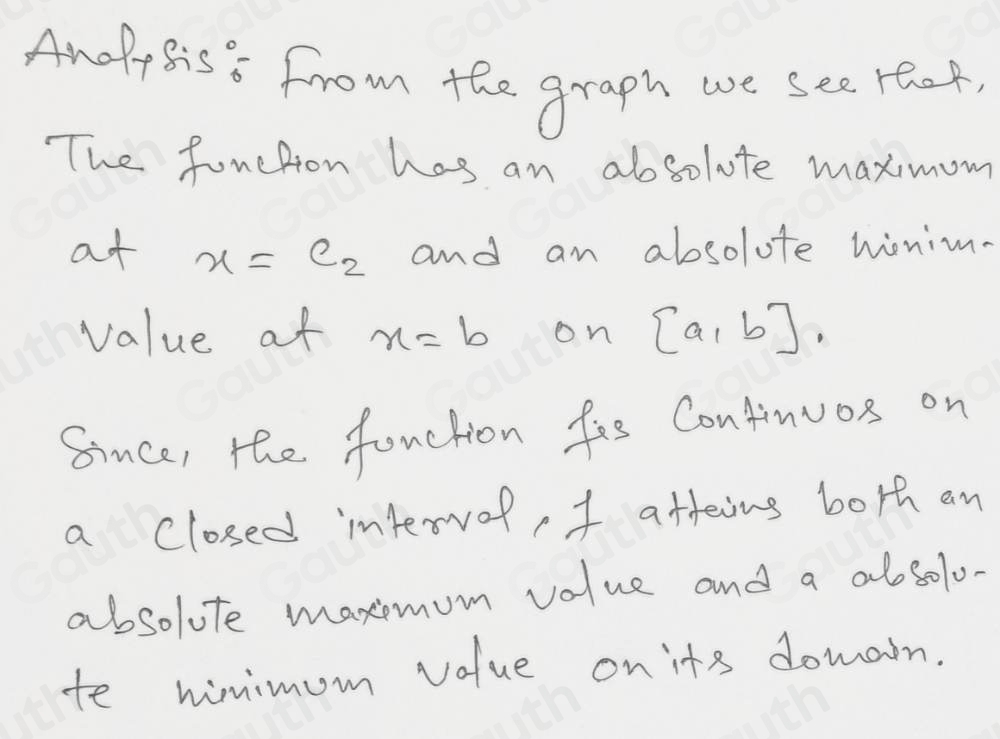 Analysis:- From the graph we see that,
The function has an absolute maximum
at x = c₂ and an absolute minim-
value at x = b on [a, b].
Since, the function f is Continuos on
a closed interval, f atteins both an
absolute maximum value and a absolu-
te minimum value on its domain.